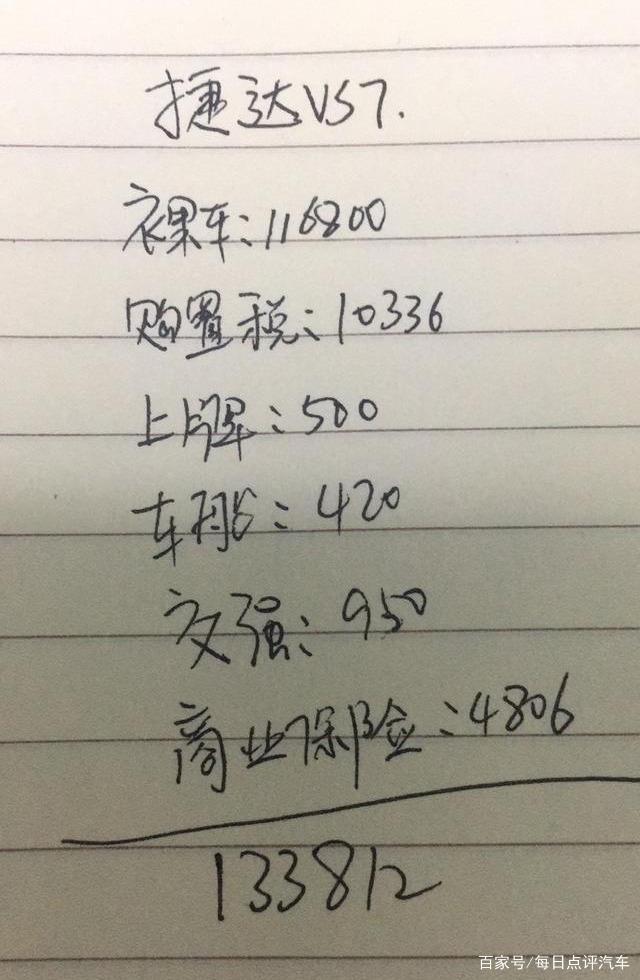 捷达VS7.
裸车:116800
购置税:10336
上牌:500
车船:420
交强:950
商业保险:4806
133812
百家号/每日点评汽车